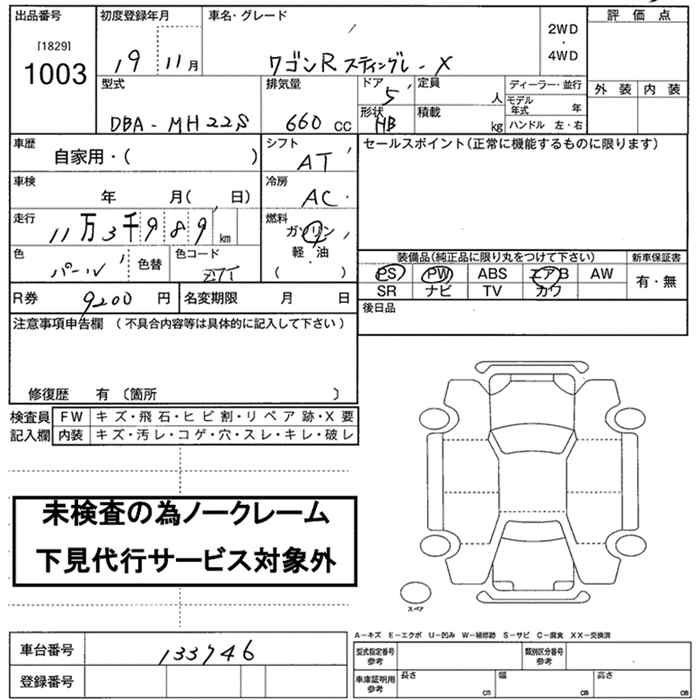 出品番号 初度登録年月 車名・グレード 2WD ・ 4WD 評価点
[1829]
1003
19 11月 ワゴンR スティングレ-X
外装 内装
型式 排気量 ドア 定員 ディーラー・並行
DBA-MH22S 660 CC 5 人 モデル年式 年
形状 積載
HB kg ハンドル 左・右
車歴 自家用・( ) シフト AT セールスポイント(正常に機能するものに限ります)
車検 年 月( 日) 冷房 AC
走行 11万3千989 km 燃料 ガソリン
軽・油
( )
色 パール 色替 色コード
装備品(純正品に限り丸をつけて下さい) 新車保証書
PS PW ABS エアB AW 有・無
SR ナビ TV カワ
R券 9200 円 名変期限 月 日 後日品
注意事項申告欄 (不具合内容等は具体的に記入して下さい)
修復歴 有 〔箇所 〕
検査員 FW キズ・飛石・ヒビ割・リペア跡・X要
記入欄 内装 キズ・汚レ・コゲ・穴・スレ・キレ・破レ
未検査の為ノークレーム
下見代行サービス対象外
スペア
A-キズ E-エクボ U-凹み W-補修跡 S-サビ C-腐食 XX-交換済
車台番号 133746 型式指定番号 参考 類別区分番号 参考
登録番号 車庫証明用 参考 長さ cm 幅 cm 高さ cm